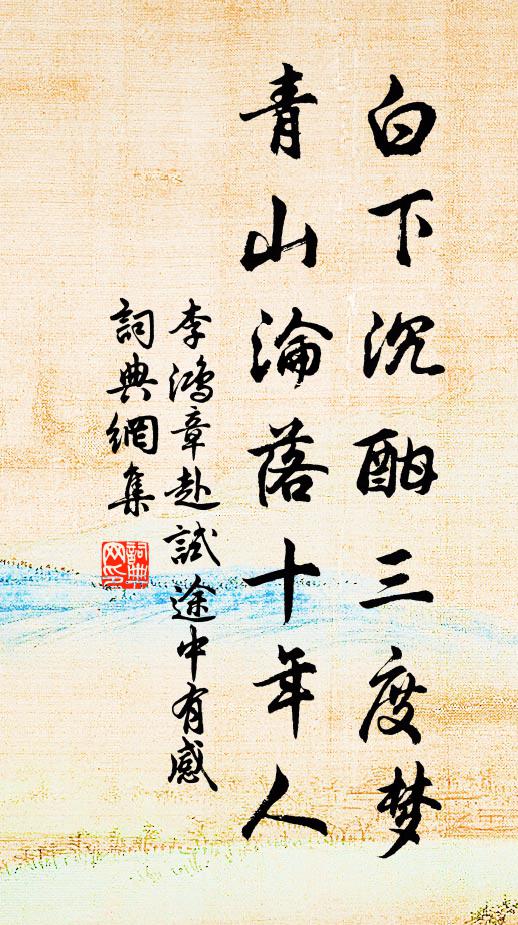 白下沉酣三度梦
青山淪落十年人
李鴻章赴試途中有感
詞典網集
詞典网印